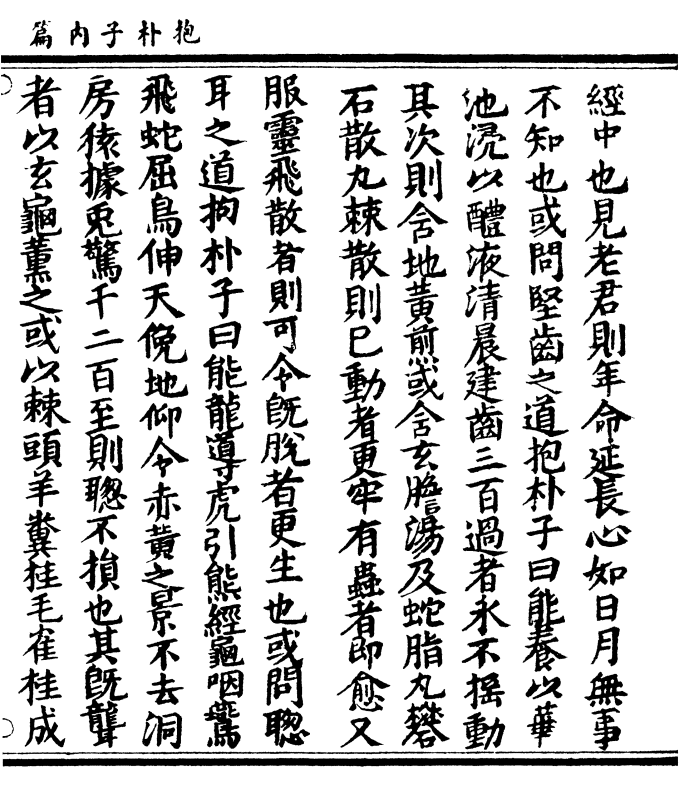 抱朴子內篇
經中也見老君則年命延長心如日月無事
不知也或問堅齒之道抱朴子曰能養以華
池浸以醴液清晨建齒三百過者永不搖動
其次則含地黃煎或含玄膽湯及蛇脂丸礬
石散丸棘散則已動者更牢有蟲者即愈又
服靈飛散者則可令既脫者更生也或問聰
耳之道拘朴子曰能龍導虎引熊經龜咽鷰
飛蛇屈鳥伸天俛地仰令赤黃之景不去洞
房猿據兎驚千二百至則聰不損也其既聾
者以玄龜薰之或以棘頭羊糞桂毛雀桂成